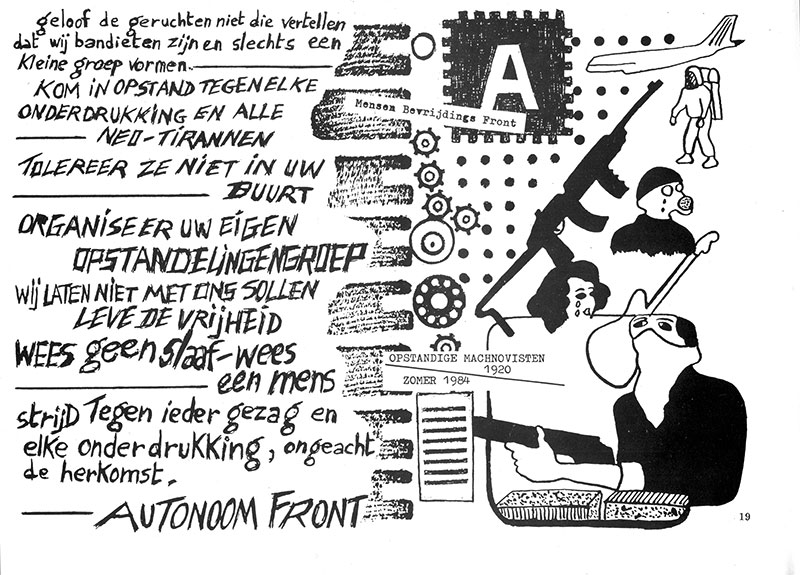 geloof de geruchten niet die vertellen
dat wij bandieten zijn en slechts een
kleine groep vormen.
KOM IN OPSTAND TEGEN ELKE
ONDERDRUKKING EN ALLE
NEO-TIRANNEN
TOLEREER ZE NIET IN UW
BUURT
ORGANISEER UW EIGEN
OPSTANDELINGENGROEP
WIJ LATEN NIET MET ONS SOLLEN
LEVE DE VRIJHEID
WEES geen slaaf-wees
een mens
strijD Tegen ieder gezag en
elke onderdrukking, ongeacht
de herkomst.
AUTONOOM FRONT
A
Mensem Bevrijdings Front
OPSTANDIGE MACHNOVISTEN
1920
ZOMER 1984
19